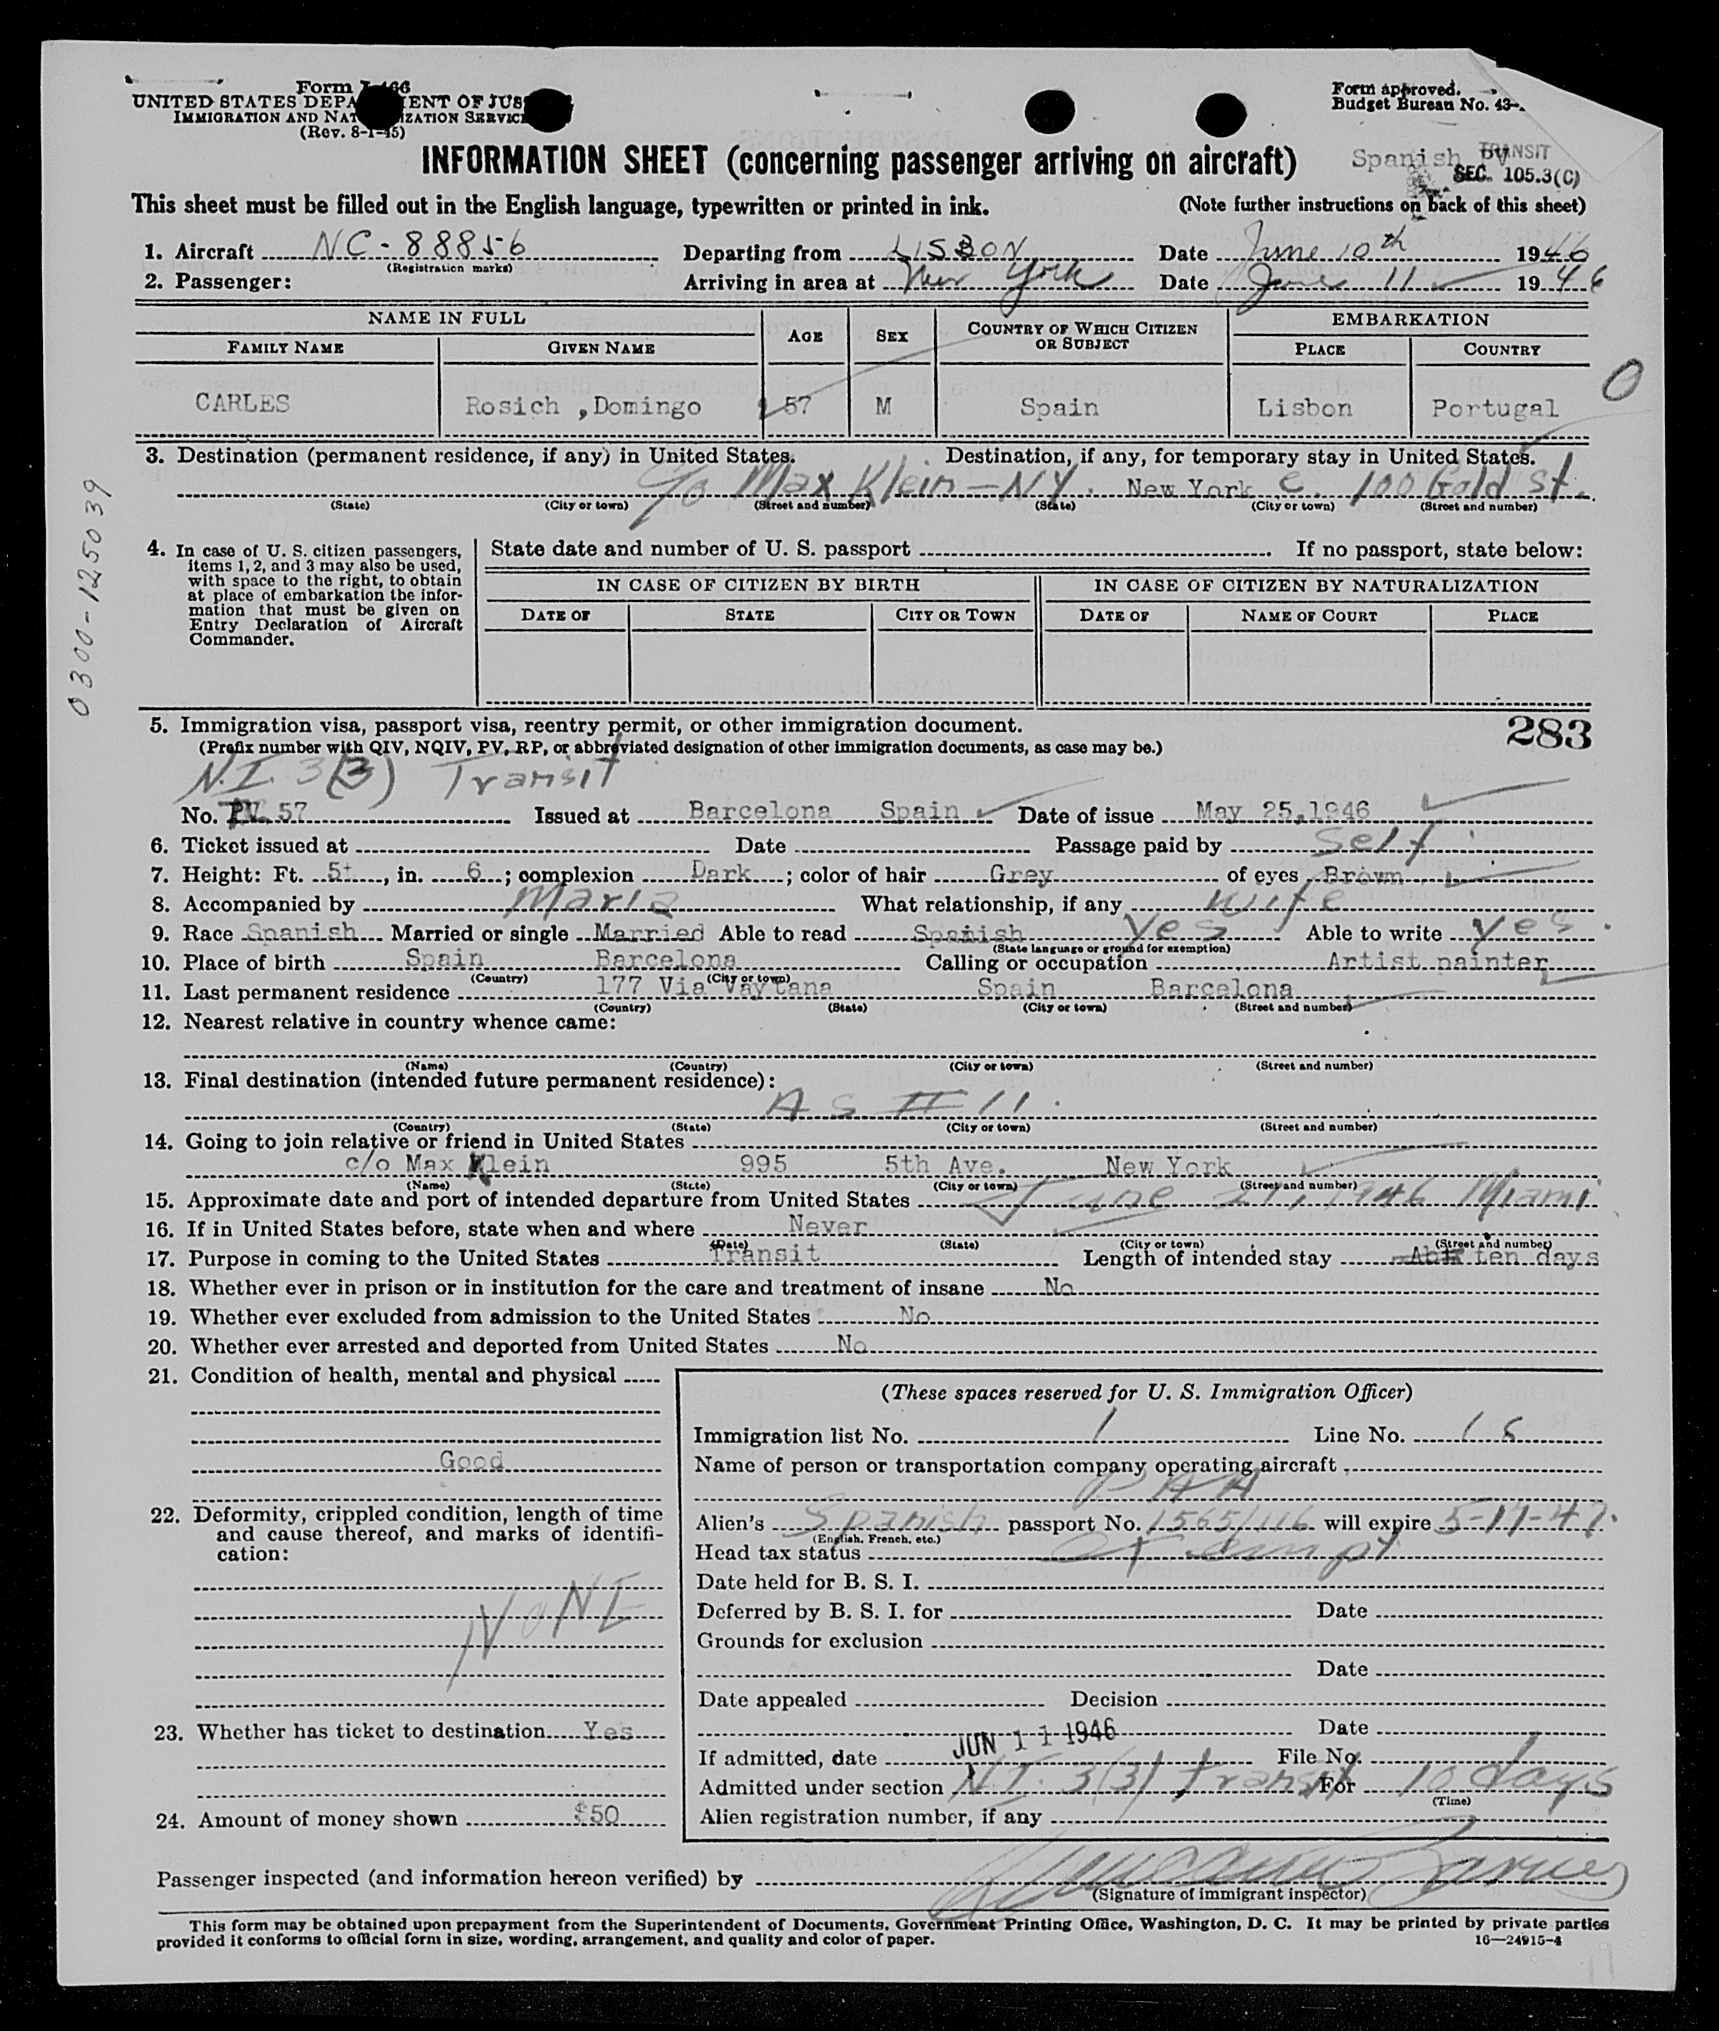 Form I-466
UNITED STATES DEPARTMENT OF JUSTICE
IMMIGRATION AND NATURALIZATION SERVICE
(Rev. 8-1-45)
Form approved.
Budget Bureau No. 43-
INFORMATION SHEET (concerning passenger arriving on aircraft)
Spanish
TRANSIT
SEC. 105.3(C)
This sheet must be filled out in the English language, typewritten or printed in ink. (Note further instructions on back of this sheet)
1. Aircraft NC-88856 Departing from LISBON Date June 10th 1946
(Registration marks)
2. Passenger: Arriving in area at New York Date June 11 1946
NAME IN FULL AGE SEX COUNTRY OF WHICH CITIZEN OR SUBJECT EMBARKATION
FAMILY NAME GIVEN NAME PLACE COUNTRY
CARLES Rosich , Domingo 57 M Spain Lisbon Portugal
0
3. Destination (permanent residence, if any) in United States. Destination, if any, for temporary stay in United States.
c/o Max Klein - NY. New York c. 100 Gold St.
(State) (City or town) (Street and number) (State) (City or town) (Street and number)
0300-125039
4. In case of U. S. citizen passengers, items 1, 2, and 3 may also be used, with space to the right, to obtain at place of embarkation the information that must be given on Entry Declaration of Aircraft Commander.
State date and number of U. S. passport If no passport, state below:
IN CASE OF CITIZEN BY BIRTH IN CASE OF CITIZEN BY NATURALIZATION
DATE OF STATE CITY OR TOWN DATE OF NAME OF COURT PLACE
5. Immigration visa, passport visa, reentry permit, or other immigration document. 283
(Prefix number with QIV, NQIV, PV, RP, or abbreviated designation of other immigration documents, as case may be.)
N.I. 3(3) Transit
No. 57 Issued at Barcelona Spain Date of issue May 25,1946
6. Ticket issued at Date Passage paid by Self
7. Height: Ft. 5, in. 6; complexion Dark; color of hair Grey of eyes Brown
8. Accompanied by Maria What relationship, if any wife
9. Race Spanish Married or single Married Able to read Spanish Yes Able to write yes
(State language or ground for exemption)
10. Place of birth Spain Barcelona Calling or occupation Artist painter
(Country) (City or town)
11. Last permanent residence 177 Via Vaytana Spain Barcelona
(Country) (State) (City or town) (Street and number)
12. Nearest relative in country whence came:
(Name) (Country) (City or town) (Street and number)
13. Final destination (intended future permanent residence):
AS # 11
(Country) (State) (City or town) (Street and number)
14. Going to join relative or friend in United States
c/o Max Klein 995 5th Ave. New York
(Name) (State) (City or town) (Street and number)
15. Approximate date and port of intended departure from United States June 21, 1946 Miami
16. If in United States before, state when and where Never
(Date) (State) (City or town) (Street and number)
17. Purpose in coming to the United States Transit Length of intended stay ten days
18. Whether ever in prison or in institution for the care and treatment of insane No
19. Whether ever excluded from admission to the United States No
20. Whether ever arrested and deported from United States No
21. Condition of health, mental and physical
Good
22. Deformity, crippled condition, length of time and cause thereof, and marks of identification:
NONE
23. Whether has ticket to destination Yes
24. Amount of money shown $50
(These spaces reserved for U. S. Immigration Officer)
Immigration list No. 1 Line No.
Name of person or transportation company operating aircraft
PAA
Alien's Spanish passport No. 1565/116 will expire 5-17-47.
(English, French, etc.)
Head tax status Exempt
Date held for B. S. I.
Deferred by B. S. I. for Date
Grounds for exclusion
Date
Date appealed Decision
Date
If admitted, date JUN 11 1946 File No.
Admitted under section N.I. 3(3) transit For 10 days
(Time)
Alien registration number, if any
Passenger inspected (and information hereon verified) by
(Signature of immigrant inspector)
This form may be obtained upon prepayment from the Superintendent of Documents, Government Printing Office, Washington, D. C. It may be printed by private parties
provided it conforms to official form in size, wording, arrangement, and quality and color of paper. 16—24915-4